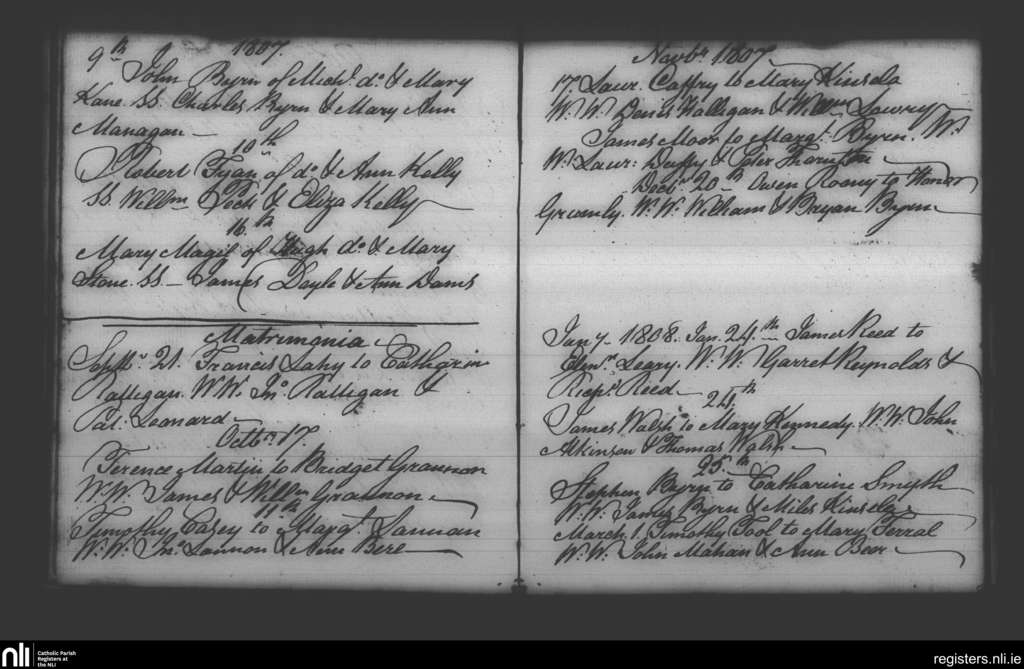 9th 1807.
John Byrn of Michl. do. & Mary
Kane. SS. Charles Byrn & Mary Ann
Managan —
10th
Robert Tyan of do. & Ann Kelly
SS. Willm & Eliza Kelly
16th
Mary Magif of Hugh do. & Mary
Stone. SS — James Doyle & Ann Davis
Matrimonia
Septr. 21. Francis Lahy to Catharin
Ralligan. W.W. Jno. Ralligan &
Pat. Leonard
Octbr. 17.
Terence Martin to Bridget Grannon
W.W. James & Willm Grannon.
11th
Timothy Casey to Margt. Lannan
W.W. Jno. Lannon & Ann Bere
Novbr. 1807.
17. Laur. Caffry to Mary Kinsela
W.W. Denis Halligan & Lowrey
James Moor to Margt. Byrn. W.
W. Laur: Duffy & Peter Thornton
Decbr. 20th Owen Rooney to Honor
W.W. William & Bryan Byrn
Jany. 1808. Jan. 24th James Reed to
Elenr. Leary. W.W. Garret Reynolds &
Richd. Reed
24th
James Walsh to Mary Kennedy. W.W. John
Atkinson & Thomas Walsh
25th
Stephen Byrn to Catharine Smyth
W.W. James Byrn & Miles Kinsela
March 1. Timothy Tool to Mary Ferral
W.W. John Mahan & Ann Beor
nli
Catholic Parish
Registers at
the NLI
registers.nli.ie